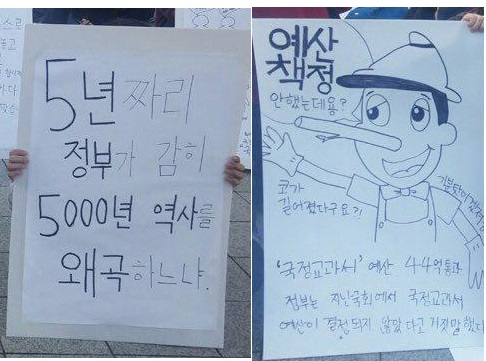 5년짜리
정부가 감히
5000년 역사를
왜곡하느냐.
예산
책정
안했는데용?
코가
길어졌다구요?!
'국정교과서' 예산 44억통과
정부는 지난국회에서 국정교과서
예산이 결정되지 않았다고 거짓말했다